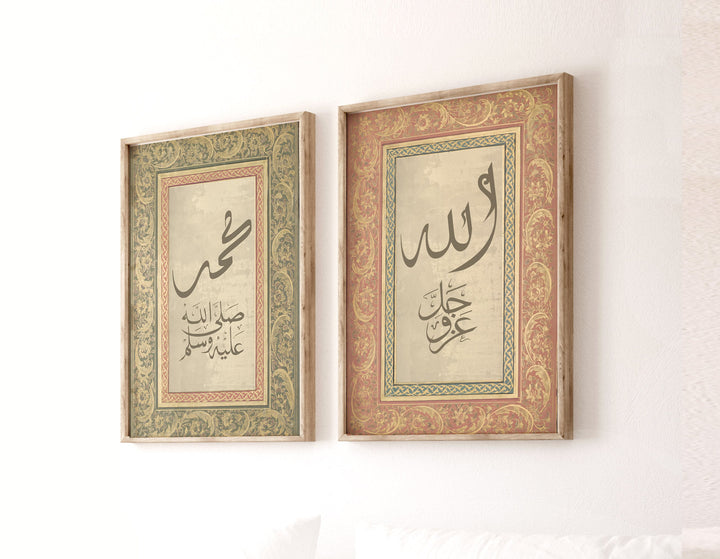 الله
عز وجل
محمد
صلى الله
عليه وسلم